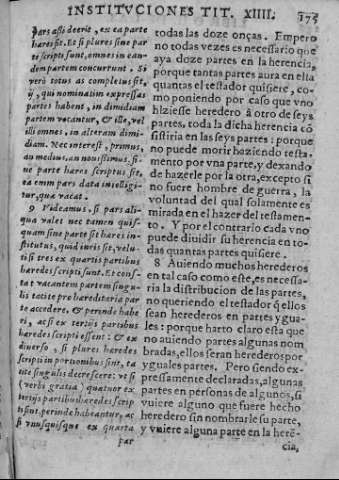 INSTITVCIONES TIT. XIIII. 175
pars assi deerit, ex ea parte
hares sit. Et si plures sine par
te scripti sunt, omnes in ean
dem partem concurrunt. Si
verò totus as completus sit,
ij, qui nominatim expressas
partes habent, in dimidiam
partem vocantur, & ille, vel
illi omnes, in alteram dimi-
diam. Nec interest, primus,
an medius, an nouissimus, si-
ne parte hares scriptus sit,
ea enim pars data intelligi-
tur, quæ vacat.
9 Videamus, si pars ali-
qua valet nec tamen quis-
quam sine parte sit hares in-
stitutus, quid iuris sit, velu-
ti si tres ex quartis partibus
haredes scripti sunt. Et cons-
ta t vacantem partem singu-
lis tacite pro hæreditaria par
te accedere, & perinde habe
ri, ac si ex tertijs partibus
haredes scripti essent: & ex
diuerso, si plures haredes
scripti in portionibus sint, ta
cite singulis decrescere: vt si
(verbi gratia) quatuor ex
tertijs partibus haredes scrip
ti sint, perinde habeantur, ac
si vnusquisque ex quarta
par
todas las doze onças. Empero
no todas vezes es necessario que
aya doze partes en la herencia,
porque tantas partes aura en ella
quantas el testador quisiere, co-
mo poniendo por caso que vno
hiziesse heredero â otro de seys
partes, toda la dicha herencia cō
sistiria en las seys partes: porque
no puede morir haziendo testa-
mento por vna parte, y dexando
de hazerle por la otra, excepto si
no fuere hombre de guerra, la
voluntad del qual solamente es
mirada en el hazer del testamen-
to. Y por el contrario cada vno
puede diuidir su herencia en to-
das quantas partes quisiere.
8 Auiendo muchos herederos
en tal caso como este, es necessa-
ria la distribucion de las partes,
no queriendo el testador q̃ ellos
sean herederos en partes ygua-
les: porque harto claro esta que
no auiendo partes algunas nom
bradas, ellos seran herederos por
yguales partes. Pero siendo ex-
pressamente declaradas, algunas
partes en personas de algunos, si
vuiere alguno que fuere hecho
heredero sin nombrarle su parte,
y vuiere alguna parte en la herē-
cia,